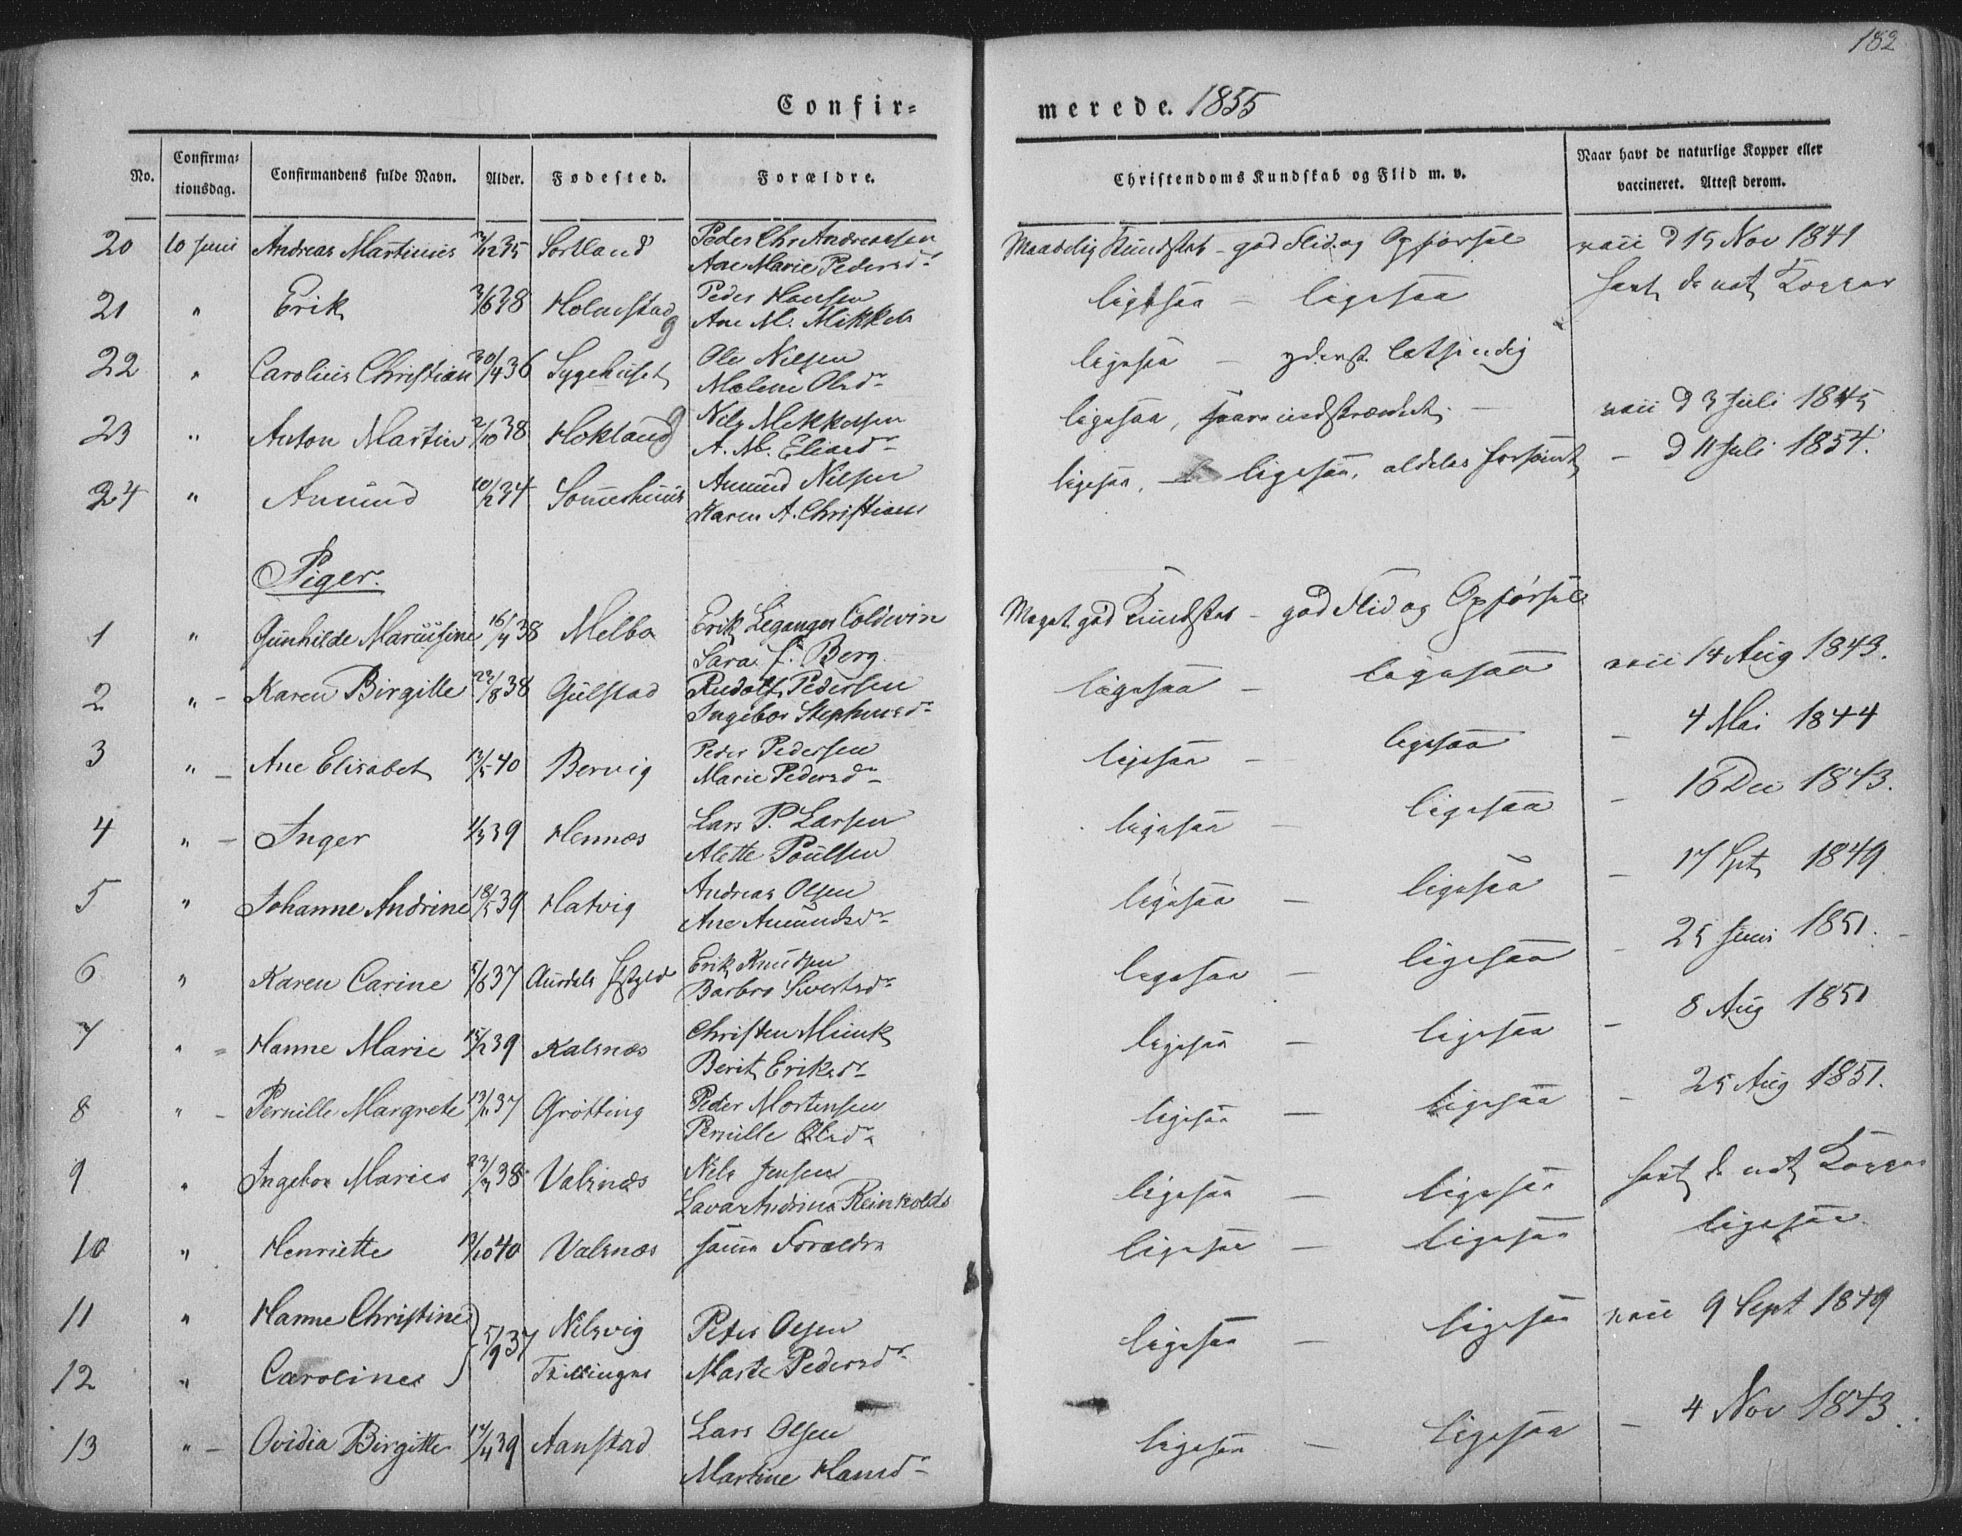 182
Confir=
merede. 1855
No.
Confirma=
tionsdag.
Confirmandens fulde Navn.
Alder.
Fødested.
Forældre.
Christendoms Kundskab og Flid m. v.
Naar havt de naturlige Kopper eller
vaccineret. Attest derom.
20 10 Juni Andreas Martinus 2/12 35 Sortland Peder Chr Andreassen
Ane Marie Pedersdr
Maadelig Kundskab - god Flid og Opførsel vacc d 15 Nov 1841
21 " Erik 3/6 38 Holmstad Peder Hansen
Ane M. Mikkels
ligesaa - ligesaa havt de nat Kopper
22 " Carolius Christian 30/4 36 Sygehuset Ole Nilsen
Malene Olsdr
ligesaa - yderst letsindig
23 " Anton Martin 2/10 38 Hokland Nils Mikkelsen
A. M. Eliasdr
ligesaa, - vacc d 3 Juli 1845
24 " Amund 10/2 34 Sommerhuus Amund Nilsen
Karen A. Christians
ligesaa, - ligesaa, aldeles forsømt - d 11 Juli 1854.
Piger.
1 " Gunhilde Marusine 16/4 38 Melbo Erik Leganger Coldevin
Sara J. Berg
Meget god Kundskab - god Flid og Opførsel
2 " - Karen Birgitte 22/8 38 Gulstad Rudolf Pedersen
Ingebor Stephensdr
ligesaa - ligesaa vacc 14 Aug 1843.
3 " - Ane Elisabet 13/5 40 Bervig Peder Pedersen
Marie Pedersdr
ligesaa - ligesaa - 4 Mai 1844
4 " - Inger 1/3 39 Hennæs Lars P. Larsen
Alette Poulsen
ligesaa - ligesaa - 16 Dec 1843.
5 " Johanne Andrine 18/5 39 Hatvig Andreas Olsen
Ane Amundsdr
ligesaa - ligesaa - 17 Spt 1849
6 " Karen Carine 5/6 37 Aurdals Erik Knudsen
Barbro Sivertsdr
ligesaa - ligesaa - 25 Juni 1851.
7 " = Hanne Marie 15/12 39 Kalsnæs Christen Munk
Berit Eriksdr
ligesaa - ligesaa - 8 Aug 1851
8 " - Pernille Margrete 13/11 37 Grøtting Peder Mortensen
Pernille Olsdr
ligesaa - ligesaa - 25 Aug 1851.
9 " Ingebor Maries 23/3 38 Valsnæs Nils Jensen
Lava Andrina Reinholds
ligesaa - ligesaa havt de nat Kopper
10 " Henriette 13/10 40 Valsnæs samme Forældre
ligesaa - ligesaa ligesaa.
11 " Hanne Christine } 5/9 37 Nilsvig Peter Olsen
ligesaa - ligesaa vacc 9 Sept 1849
12 " Caroline Tvillinger Marte Pedersdr
13 " - Ovidia Birgitte 17/4 39 Aanstad Lars Olsen
Martine Hansdr
ligesaa - ligesaa - 4 Nov 1843.